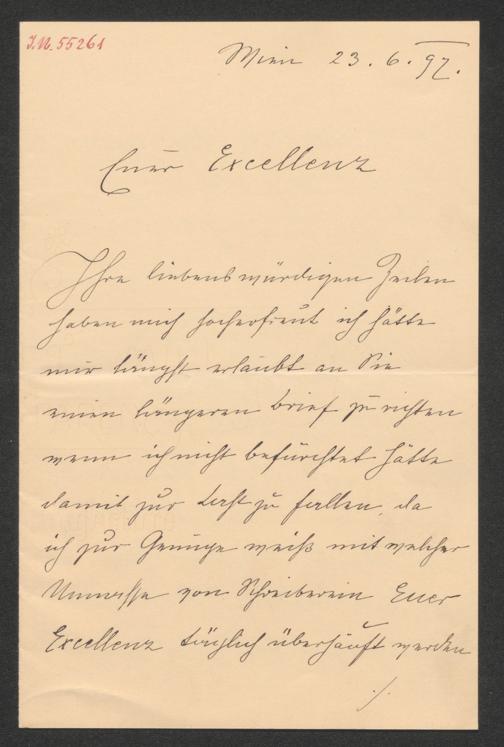 J.N. 55261
Wien 23. 6. 97.
Euer Excellenz
Ihre liebenswürdigen Zeilen
haben mich hocherfreut ich hätte
mir längst erlaubt an Sie
einen längeren Brief zu richten
wenn ich nicht befürchtet hätte
damit zur Last zu fallen, da
ich zur Genüge weiß mit welcher
Unmasse von Schreiberein Euer
Excellenz täglich überhäuft werden
./.